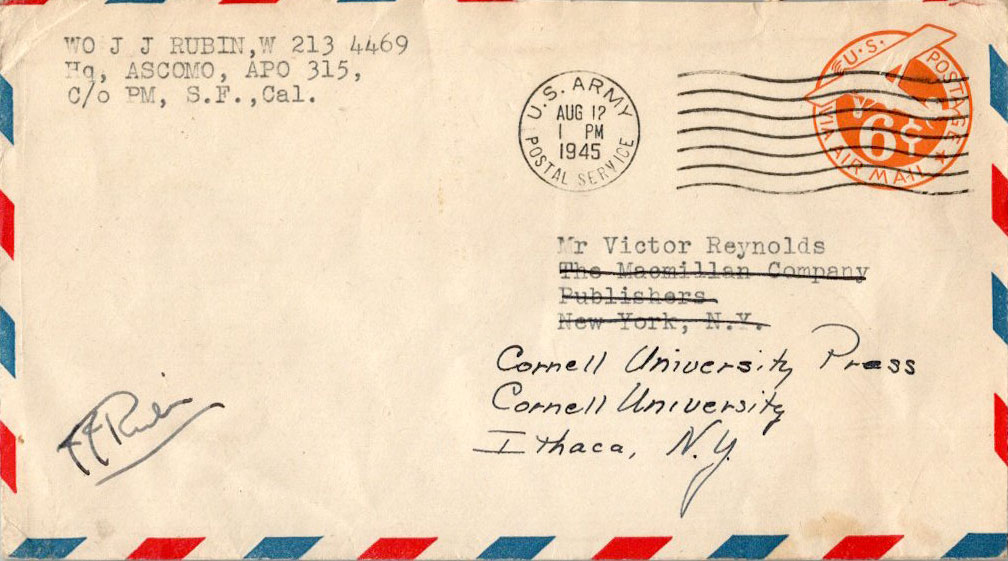 WO J J RUBIN,W 213 4469
Hq, ASCOMO, APO 315,
C/o PM, S.F.,Cal.
U.S. ARMY
AUG 12
1 PM
1945
POSTAL SERVICE
U.S. POSTAGE
6¢
VIA AIR MAIL
Mr Victor Reynolds
The Macmillan Company
Publishers
New York, N.Y.
Cornell University Press
Cornell University
Ithaca, N.Y.
JJRubin